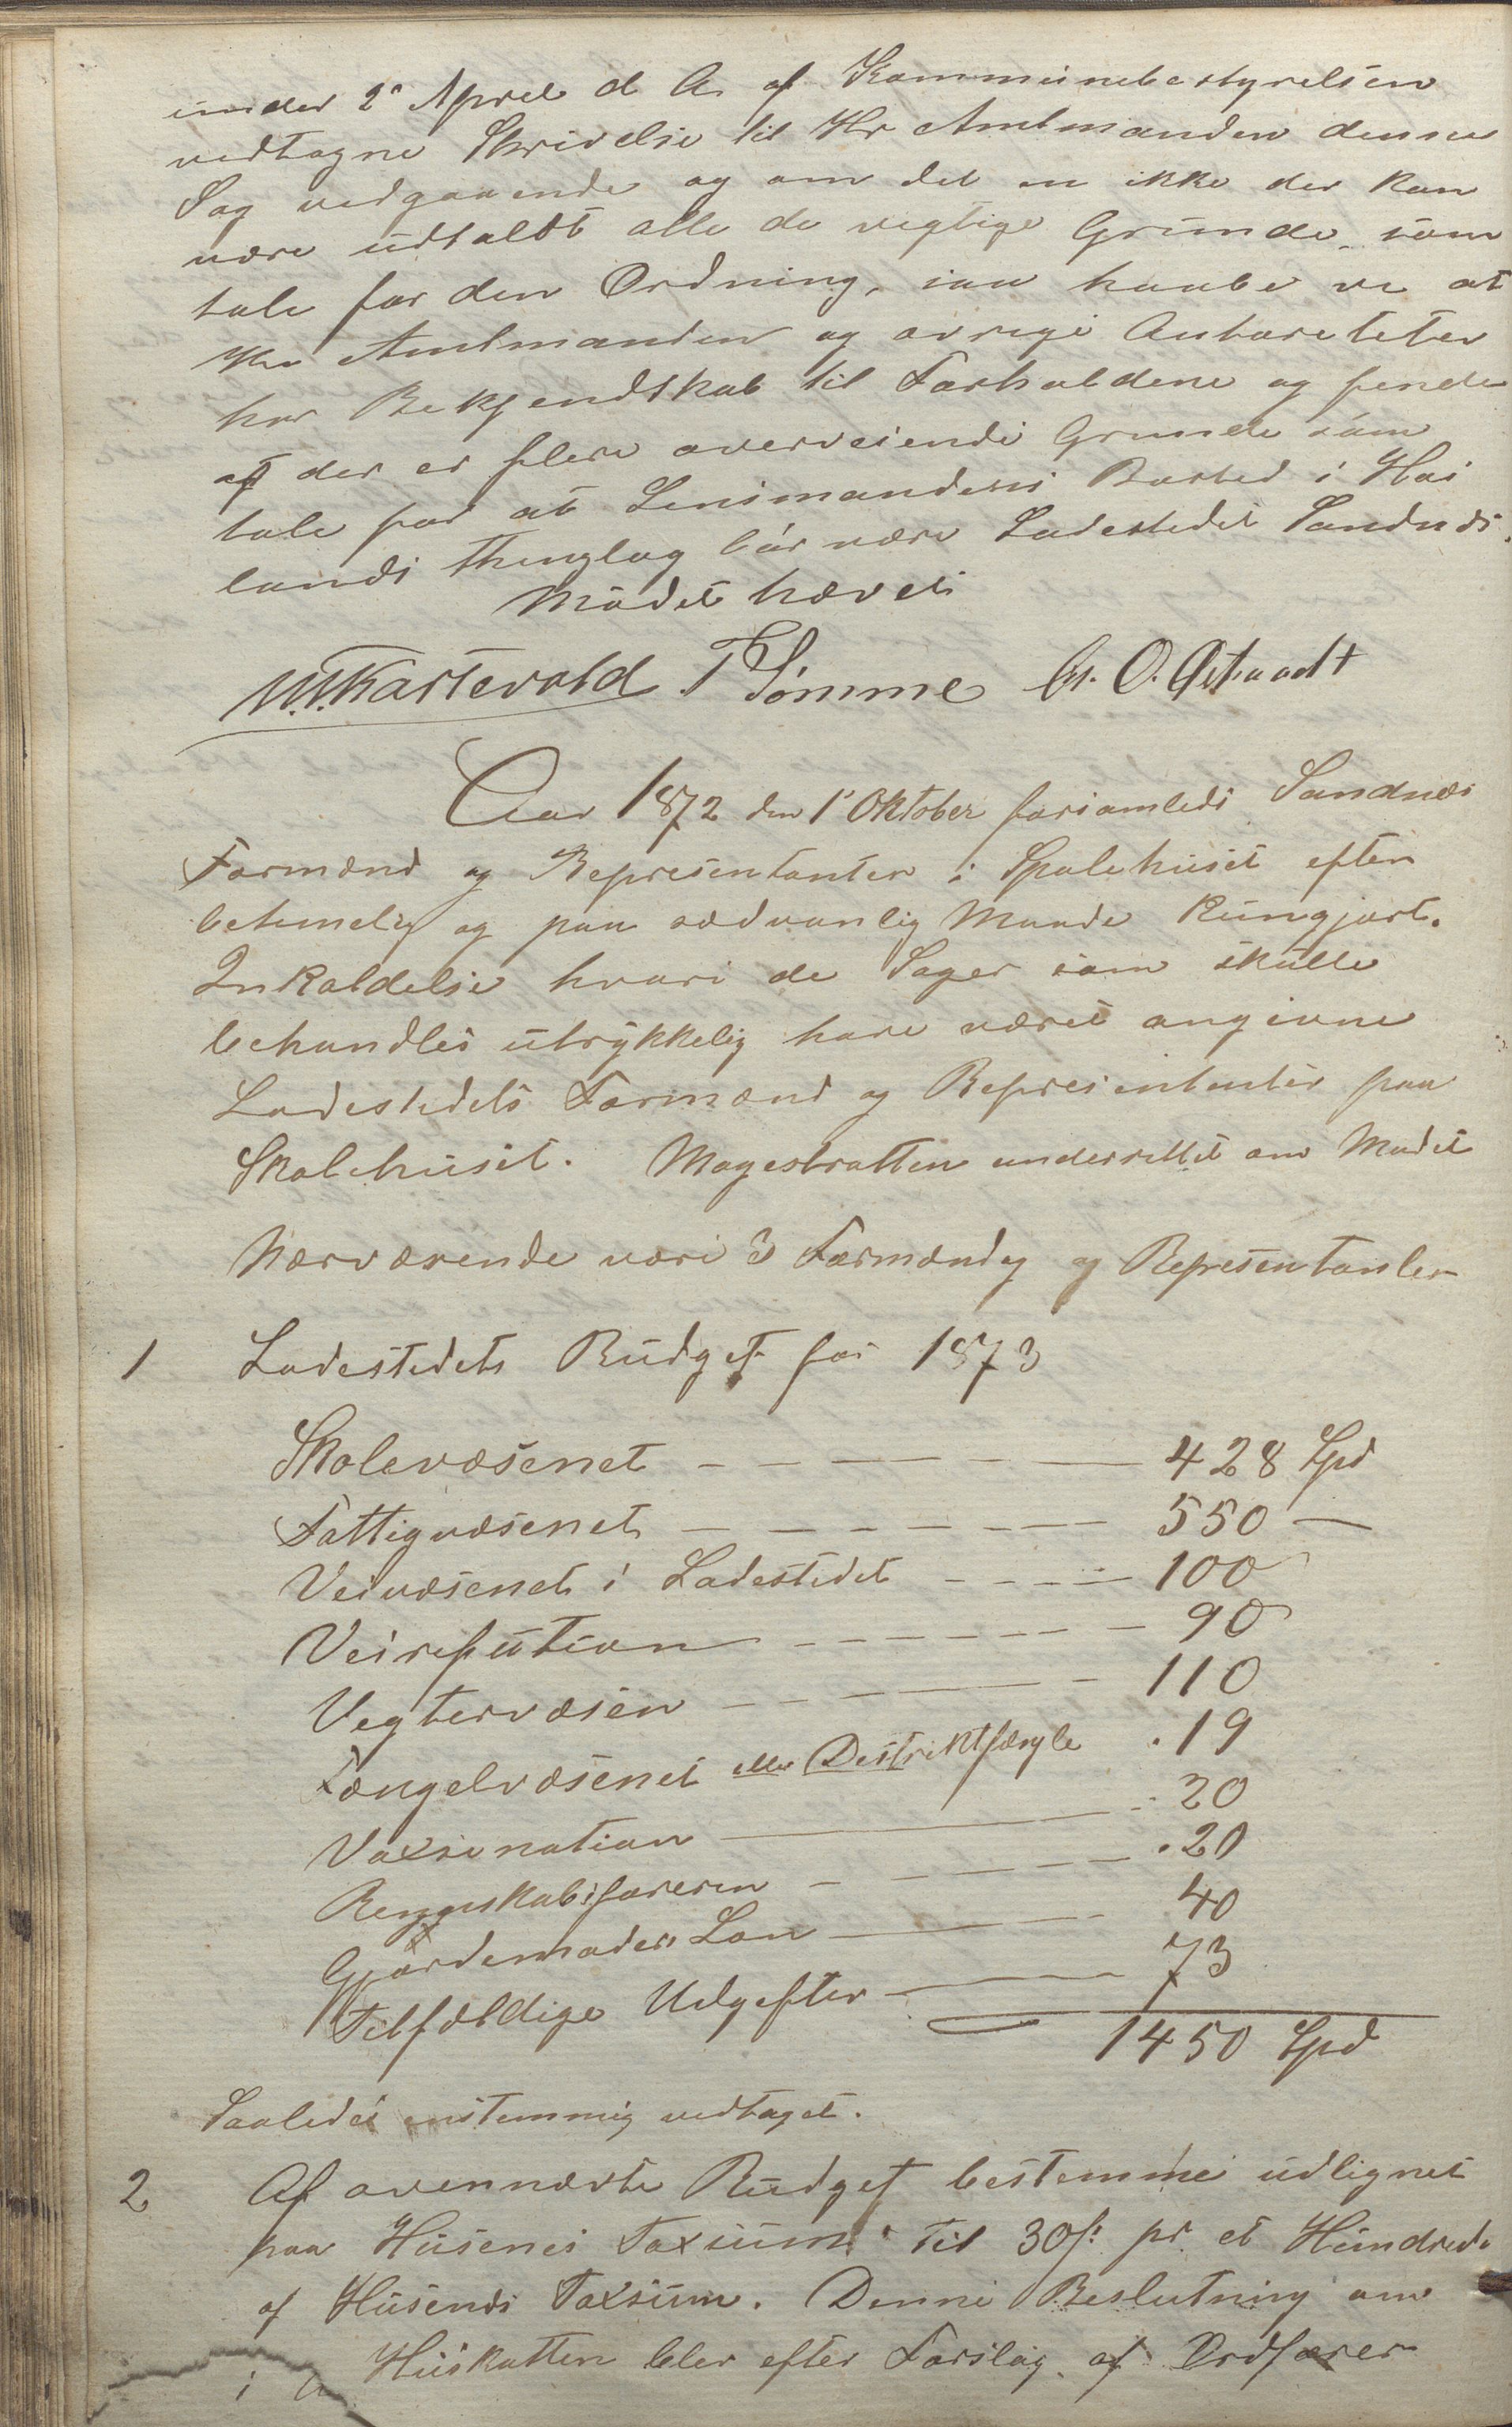 under 2den April d A. af Kommunebestyrelsen
vedtagne Skrivelse til Hr Amtmanden denne
Sag vedgaaende og om det en ikke der kan
være udtaldt alle de vegtige Grunde som
tale for den Ordning, saa haabe vi at
Hr Amtmanden og øvrige Autoreteter
har Bekjendtskab til Forholdene og finde
at der er flere overveiende Grunde som
tale for at Lensmandens Bosted i Høi
lands Thinglag bør være Ladestedet Sandnæs.
Mødet hævet
T Sømme
Aar 1872 den 1ste Oktober forsamledes Sandnæs
Formænd og Representanter i Skolehuset efter
betimelig og paa sædvanlig Maade kungjort
Inkaldelse hvori de Sager som skulle
behandles utrykkelig have været angivne
Ladestedets Formænd og Representanter paa
Skolehuset. Magestratten underrettet om Mødet
Nærværende være 3 Formænd og Representanter
1 Ladestedets Budget for 1873
Skolevæsenet 428 Spd
Fattigvæsenet 550 —
Veivæsenet i Ladestedet 100
90
Vegtervæsen 110
Fængelvæsenet eller Destriktfængle 19
Vaxsination 20
Regnskabsføreren 20
Gjordemoders Løn 40
Telfældige Udgefter 73
1450 Spd
Saaledes enstemmig vedtaget.
2 Af ovennævte Budget bestemmes udlignet
paa Husenes Taxsum til 30 s: pr. et Hundrede
af Husenes Taxsum. Denne Beslutning om
Huskatten blev efter Forslag af Ordfører